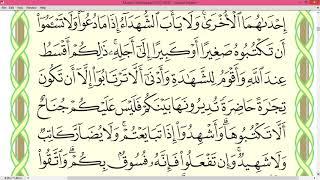 إِحْدَىٰهُمَا ٱلْأُخْرَىٰ وَلَا يَأْبَ ٱلشُّهَدَآءُ إِذَا مَا دُعُوا۟ وَلَا تَسْـَٔمُوٓا۟
أَن تَكْتُبُوهُ صَغِيرًا أَوْ كَبِيرًا إِلَىٰٓ أَجَلِهِۦ ذَٰلِكُمْ أَقْسَطُ
عِندَ ٱللَّهِ وَأَقْوَمُ لِلشَّهَٰدَةِ وَأَدْنَىٰٓ أَلَّا تَرْتَابُوٓا۟ إِلَّآ أَن تَكُونَ
تِجَٰرَةً حَاضِرَةً تُدِيرُونَهَا بَيْنَكُمْ فَلَيْسَ عَلَيْكُمْ جُنَاحٌ
أَلَّا تَكْتُبُوهَا وَأَشْهِدُوٓا۟ إِذَا تَبَايَعْتُمْ وَلَا يُضَآرَّ كَاتِبٌ
وَلَا شَهِيدٌ وَإِن تَفْعَلُوا۟ فَإِنَّهُۥ فُسُوقٌۢ بِكُمْ وَٱتَّقُوا۟